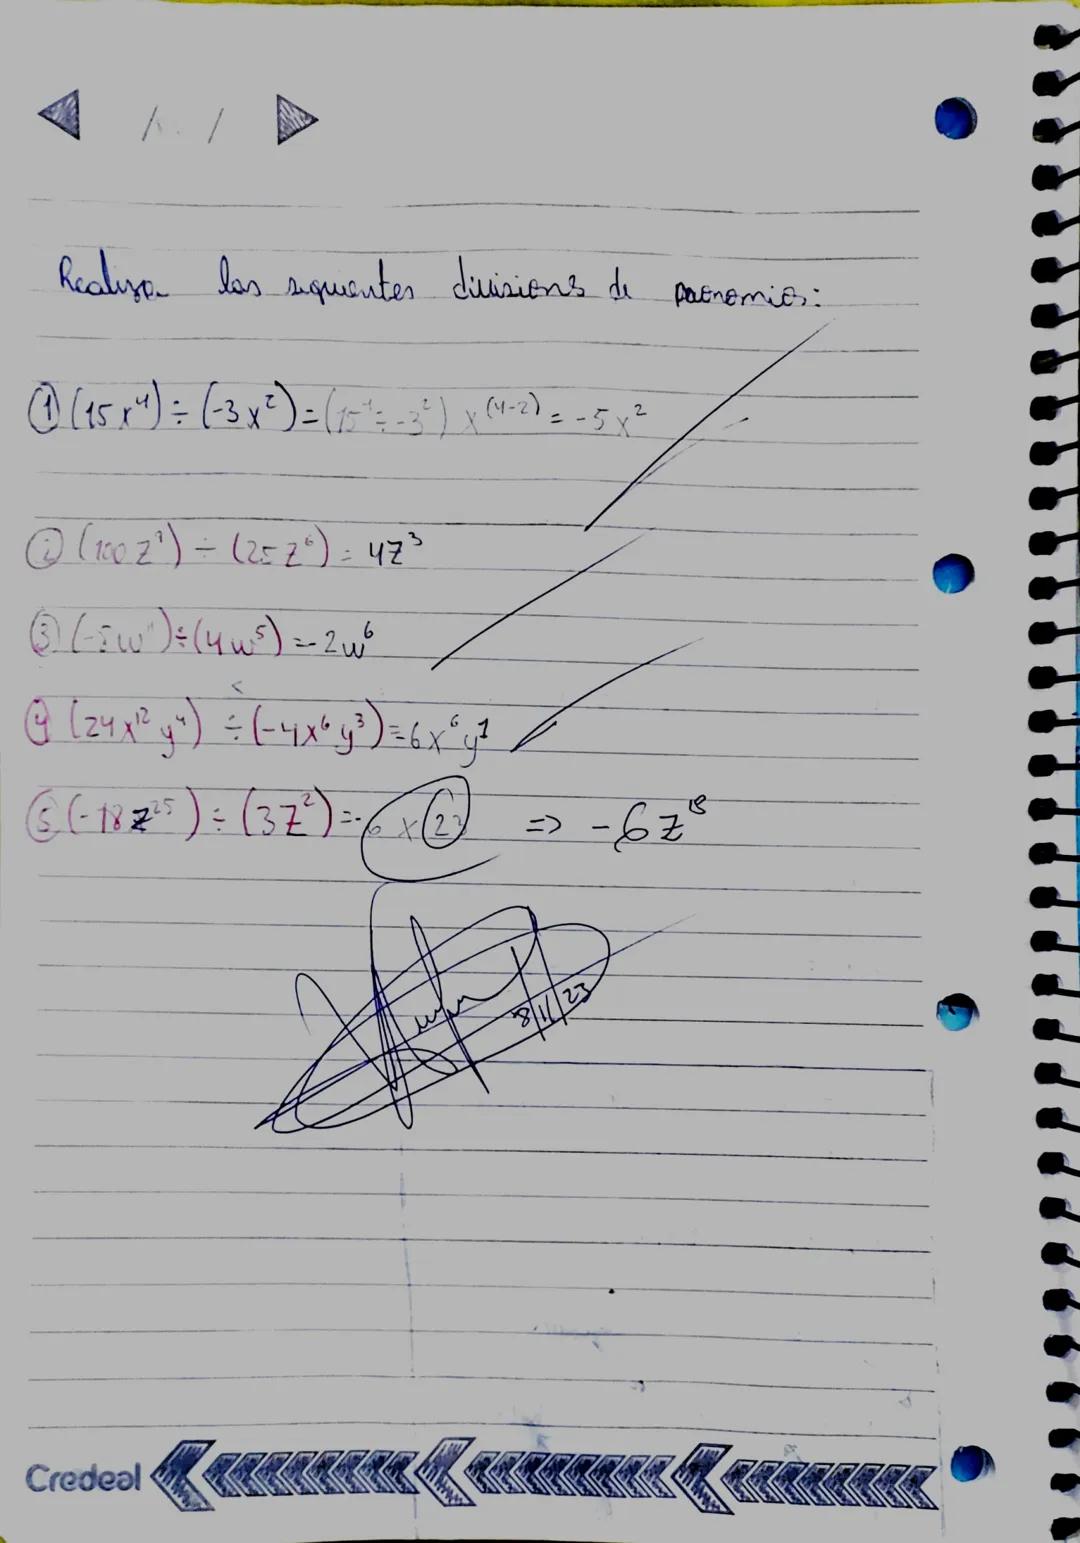 Realiza las siguientes divisions de
① (15x⁴) ÷ (-3x²) = (15⁴ ÷ -3²) x⁽⁴⁻²⁾ = -5x²
② (100z⁹) ÷ (25z⁶) = 4z³
③ (-5w¹¹) ÷ (4w⁵) = -2w⁶
④ (24x¹²y⁴) ÷ (-4x⁶y³) = 6x⁶y¹
⑤ (-18z²⁵) ÷ (3z²) = -6x²³ => -6z¹⁸
8/11/23
Credeal